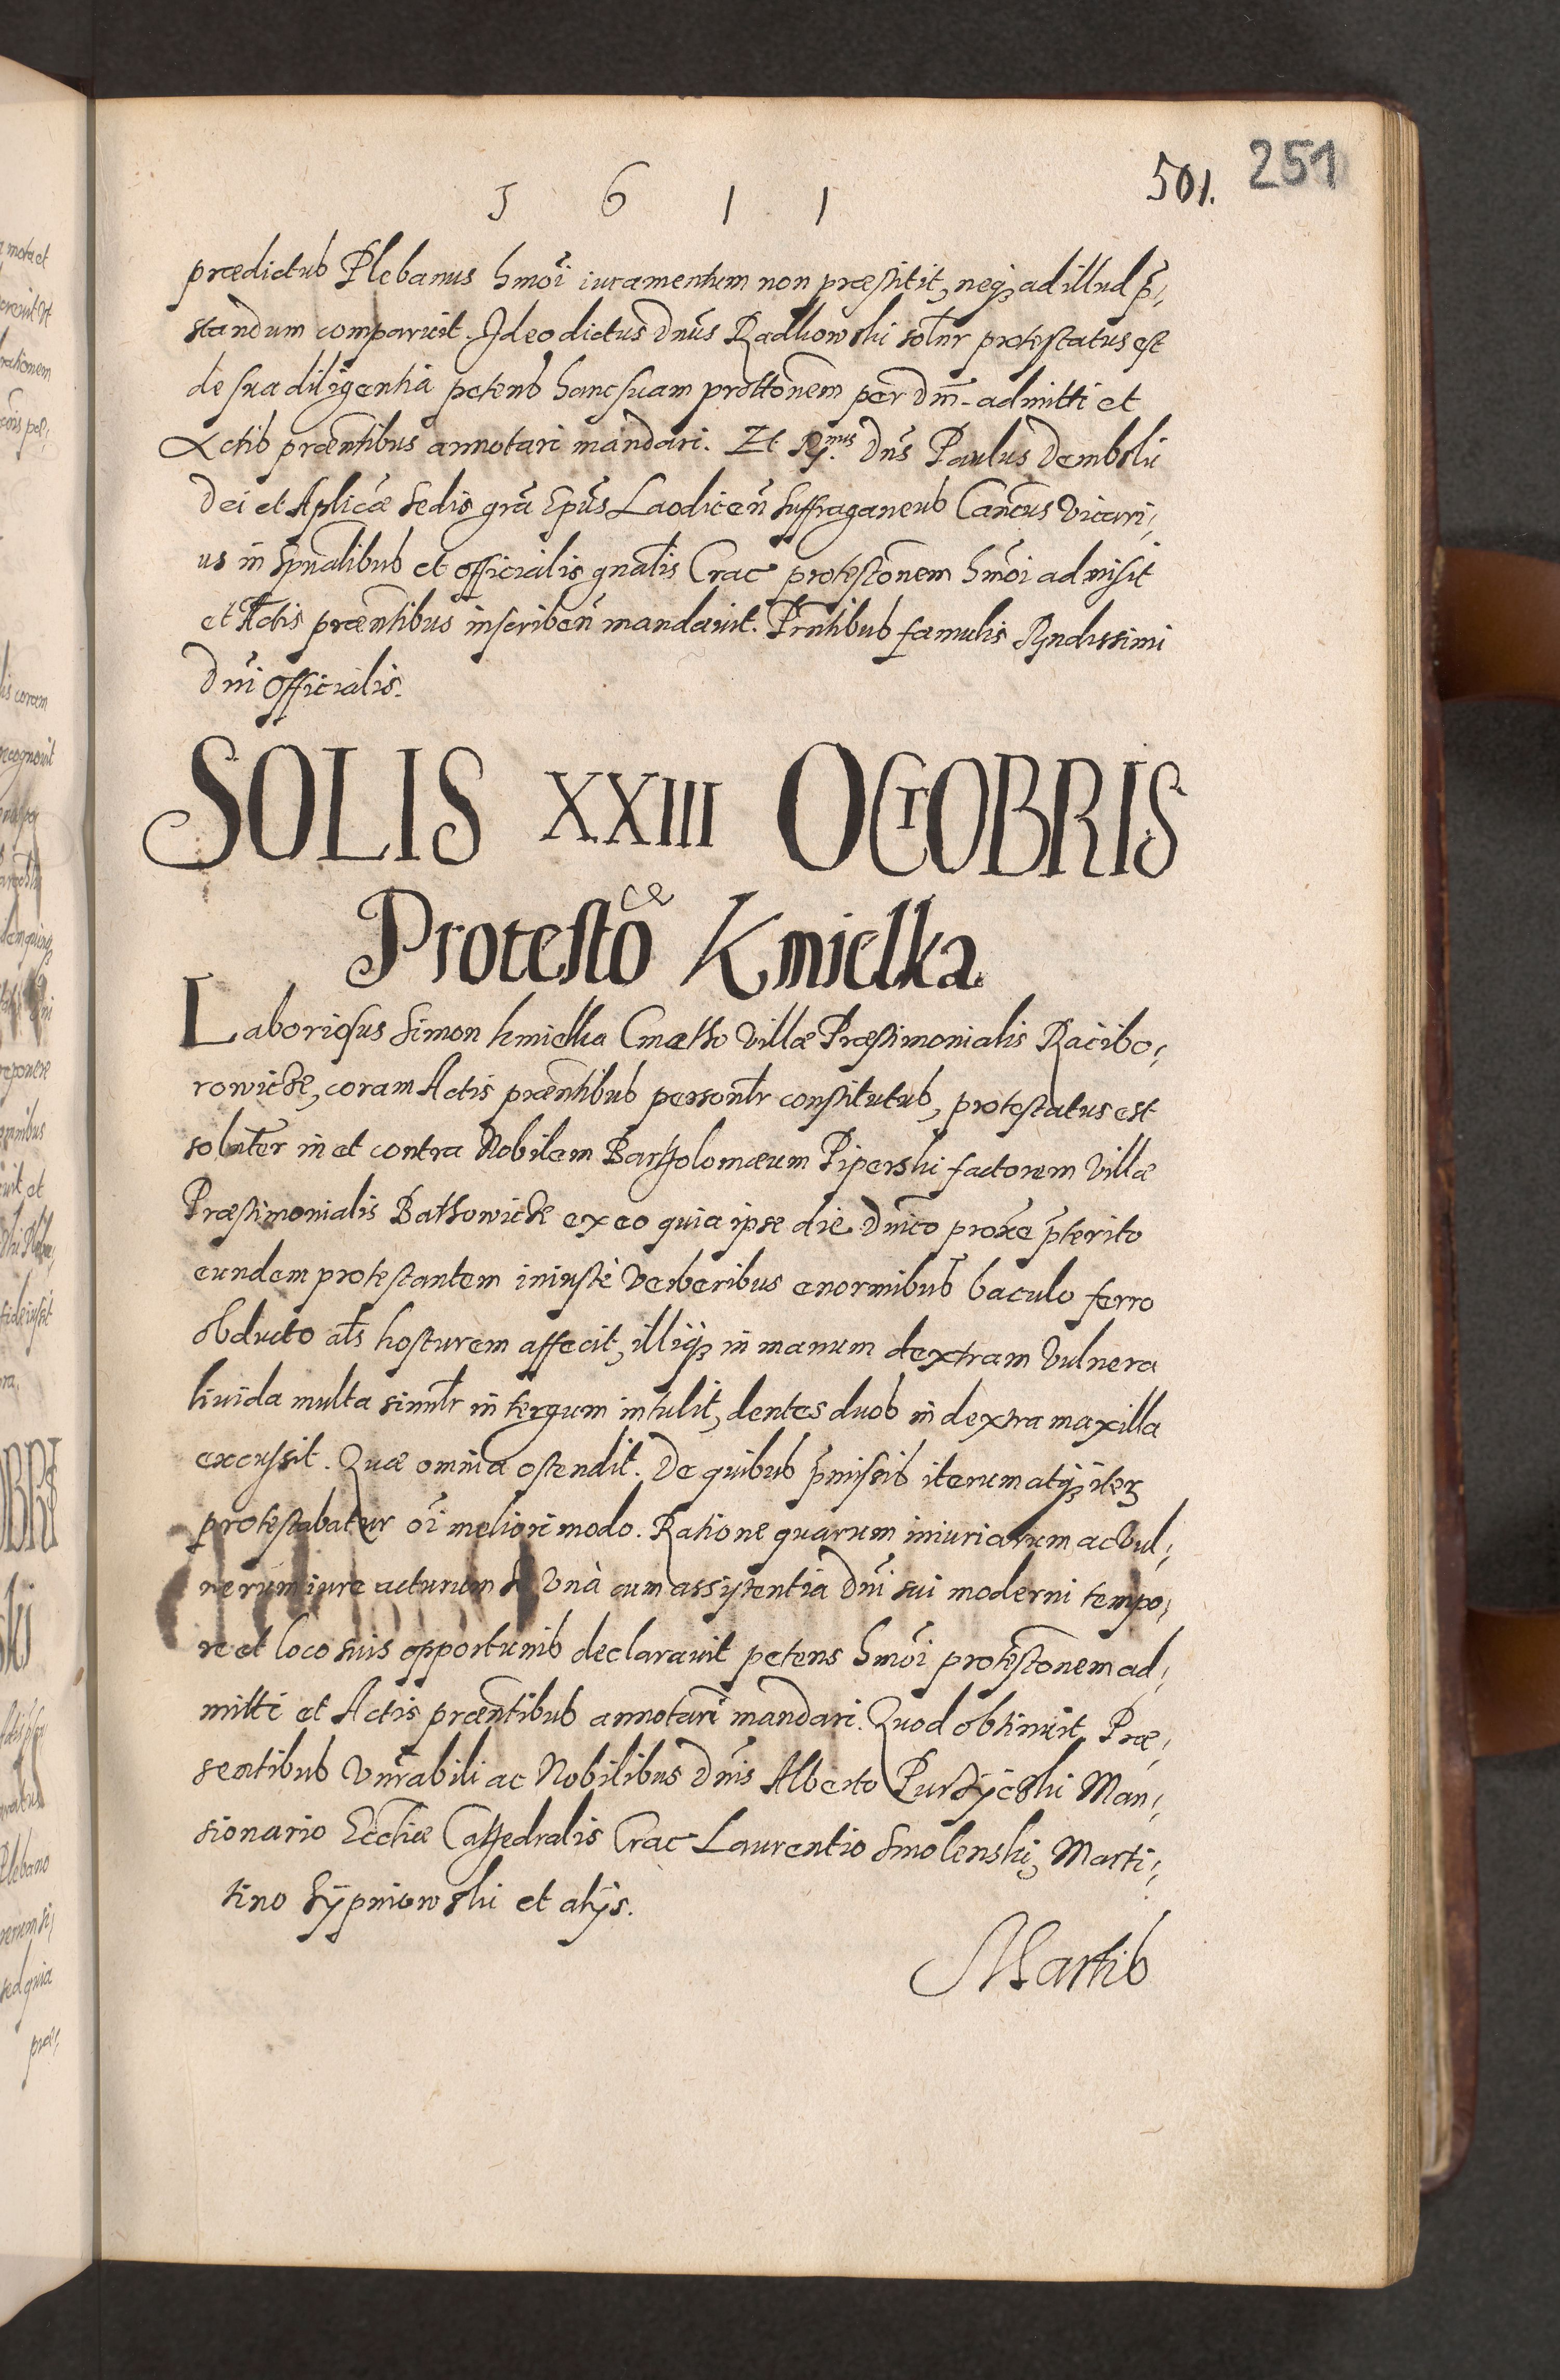 1 6 1 1
501.
251
prædictus Plebanus hmõi iuramentum non præstitit, neq; ad illud p̃-
standum comparuit. Ideo dictus Dnũs Radkowski solnr protestatus est
de sua diligentia petens hanc suam prottõnem per Dm̃ admitti et
Actis præntibus annotari mandari. Et R.mus Dñs Paulus Dembski
Dei et Aplicæ sedis grã Epũs Laodiceñ Suffraganeus Cancus Vicari-
us in Spũalibus et officialis gnalis Crac protestõnem hmõi admisit
et Actis præntibus inscribeñ mandauit. Prñtibus famulis Rndissimi
Dnĩ Officialis.
SOLIS XXIII OCTOBRIS
Protesto Kmielka
Laboriosus Simon Kmielka Cmetho Villæ Præstimonialis Racibo-
rowicze, coram Actis præntibus personlr constitutus, protestatus est
solnter in et contra Nobilem Bartholomæum Piperski factorem Villæ
Præstimonialis Bathowicze ex eo quia ipse die Dnĩco proxe p̃terito
eundem protestantem iniustè Verberibus enormibus baculo ferro
obducto als hosturem affecit, illiq; in manum dextram Vulnera
liuida multa similr in tergum intulit, dentes duos in dextra maxilla
excussit. Quæ omnia ostendit. De quibus p̃missis iterum atq; iterũ
protestabatur oĩ meliori modo. Ratione quarum iniuriarum ac Vul-
nerum iure acturum se Vnà cum assistentia Dnĩ sui moderni tempo-
re et loco suis opportunis declarauit petens hmõi protestõnem ad-
mitti et Actis præntibus annotari mandari. Quod obtinuit Præ-
sentibus Vnrabili ac Nobilibus Dnĩs Alberto Purzÿcski Man-
sionario Eccliæ Cathedralis Crac Laurentio Smolenski, Marti-
tino Sÿpniowski et alijs.
Martis